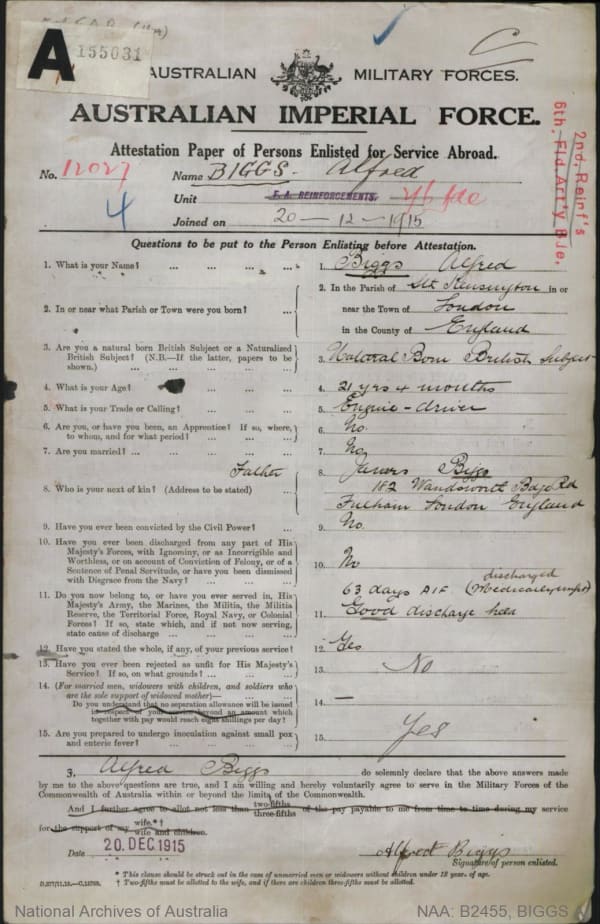 A 155031
C
AUSTRALIAN MILITARY FORCES.
AUSTRALIAN IMPERIAL FORCE.
2nd. Reinf's
6th. Fld. Art'y B'de.
Attestation Paper of Persons Enlisted for Service Abroad.
No. 12027 Name BIGGS - Alfred
4 Unit F. A. REINFORCEMENTS.
Joined on 20 - 12 - 1915
Questions to be put to the Person Enlisting before Attestation.
1. What is your Name? ... ... ... ... 1. Biggs Alfred
2. In or near what Parish or Town were you born? ... 2. In the Parish of Sth Kensington in or
near the Town of London
in the County of England
3. Are you a natural born British Subject or a Naturalized
British Subject? (N.B.—If the latter, papers to be
shown.) ... ... ... ... 3. Natural Born British Subject
4. What is your Age? ... ... ... 4. 21 yrs 4 months
5. What is your Trade or Calling? ... ... ... 5. Engine-driver
6. Are you, or have you been, an Apprentice? If so, where,
to whom, and for what period? ... ... ... 6. No.
7. Are you married? ... ... ... ... 7. No
8. Who is your next of kin? (Address to be stated) ... Father 8. James Biggs
182 Wandsworth Bdge Rd
Fulham London England
9. Have you ever been convicted by the Civil Power? ... 9. No.
10. Have you ever been discharged from any part of His
Majesty's Forces, with Ignominy, or as Incorrigible and
Worthless, or on account of Conviction of Felony, or of a
Sentence of Penal Servitude, or have you been dismissed
with Disgrace from the Navy? ... ... ... 10. No
11. Do you now belong to, or have you ever served in, His
Majesty's Army, the Marines, the Militia, the Militia
Reserve, the Territorial Force, Royal Navy, or Colonial
Forces? If so, state which, and if not now serving,
state cause of discharge ... ... ... 11. 63 days AIF discharged (Medically unfit)
Good discharge
12. Have you stated the whole, if any, of your previous service? 12. Yes
13. Have you ever been rejected as unfit for His Majesty's
Service? If so, on what grounds? ... ... 13. No
14. (For married men, widowers with children, and soldiers who
are the sole support of widowed mother)—
Do you understand that no separation allowance will be issued
in respect of your service beyond an amount which
together with pay would reach eight shillings per day? 14. —
15. Are you prepared to undergo inoculation against small pox
and enteric fever? ... ... ... ... 15. Yes
I, Alfred Biggs do solemnly declare that the above answers made
by me to the above questions are true, and I am willing and hereby voluntarily agree to serve in the Military Forces of the
Commonwealth of Australia within or beyond the limits of the Commonwealth.
And I further agree to allot not less than two-fifths three-fifths of the pay payable to me from time to time during my service
for the support of my wife.*† wife and children.
Date 20 DEC 1915 Alfred Biggs
Signature of person enlisted.
* This clause should be struck out in the case of unmarried men or widowers without children under 18 years of age.
† Two-fifths must be allotted to the wife, and if there are children three-fifths must be allotted.
National Archives of Australia NAA: B2455, BIGGS A